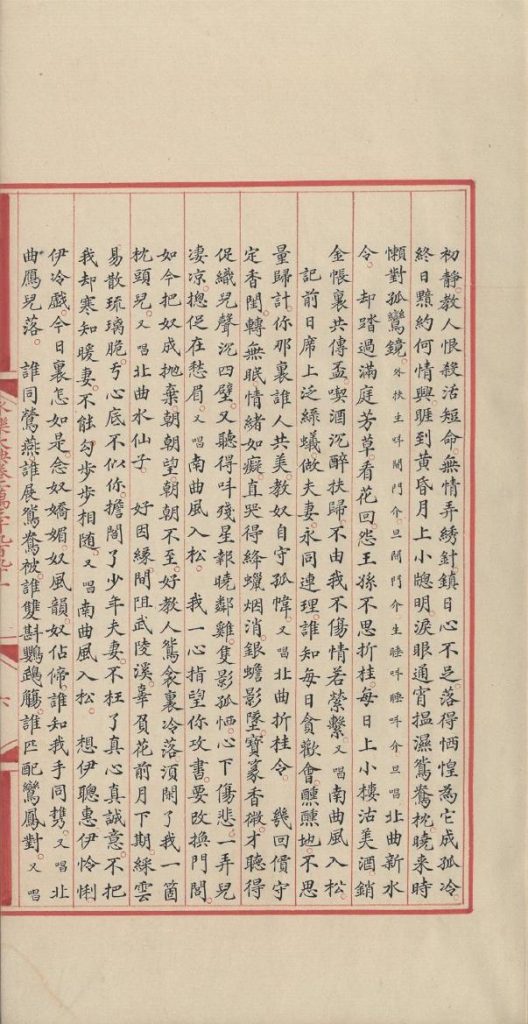 初靜。教人恨殺活短命。無情弄綉針鎮日心不足。落得恓惶為它成孤冷。
終日黯約何情興。睚到黄昏月上小牕明。淚眼通宵揾濕鴛鴦枕。曉来時
懶對孤鸞鏡。外扶生呌開門介旦開門介生睡呌睡呌介旦唱北曲新水
令。 却踏過滿庭芳草。看花回。怨王孫不思折桂。每日上小樓沽美酒。銷
金帳裏共傳盃。喫酒沉醉扶歸。不由我不傷情若縈繫。又唱南曲風入松。
記前日席上泛綠蟻。做夫妻。永同連理。誰知每日貪歡會。醺醺地。不思
量歸計。你那裏誰人共美。教奴自守孤幃。又唱北曲折桂令。 幾回價守
定香閨。轉無眠情緒如癡。直哭得絳蠟烟消。銀蟾影墜。寶篆香微。才聽得
促織兒聲沉四壁。又聽得呌殘星報曉鄰雞。隻影孤恓。心下傷悲。一弄兒
凄凉。摠促在愁眉。又唱南曲風入松。 我一心指望你攻書。要改換門閭。
如今把奴成抛棄。朝朝望朝朝不至。好教人鴛衾裏冷落。須閑了我一箇
枕頭兒。又唱北曲水仙子。 好因緣間阻武陵溪。辜負花前月下期。綵雲
易散琉璃脆。亏心底不似你。擔閣了少年夫妻。不枉了真心真誠意。不把
我却寒知暖妻。不能勾步步相随。又唱南曲風入松。 想伊聰惠伊怜悧。
伊冷戲。今日裏怎如是。念奴嬌媚。奴風韻。奴佔偙。誰知我手同携。又唱北
曲鴈兒落。 誰同鶯燕。誰展鴛鴦被。誰雙斟鸚鵡觴。誰匹配鸞鳳對。又唱